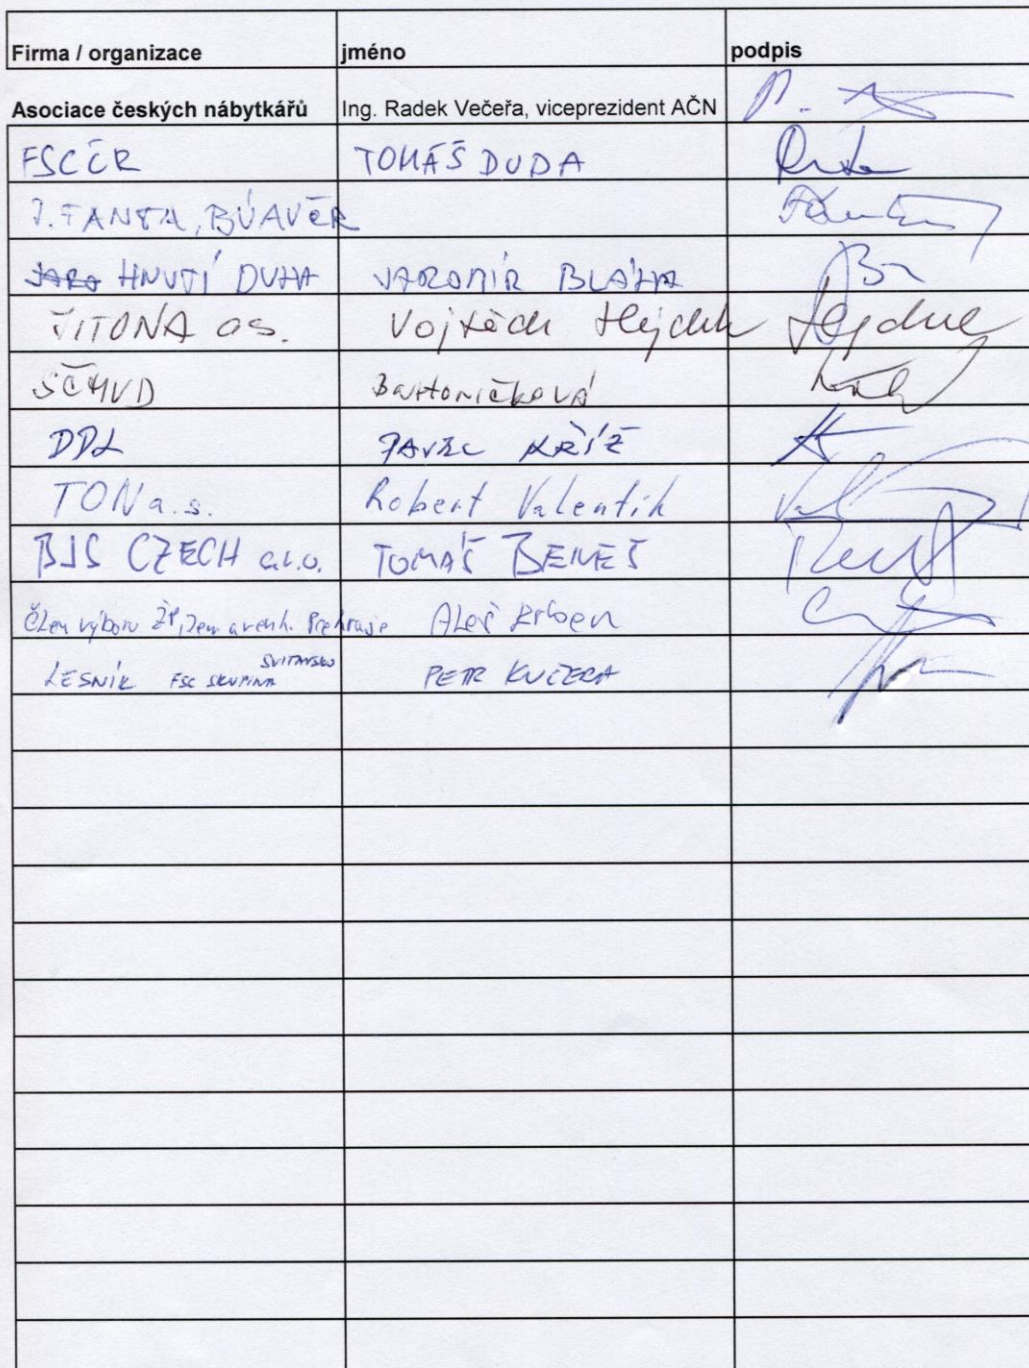 Firma / organizace jméno podpis
Asociace českých nábytkářů Ing. Radek Večeřa, viceprezident AČN
FSC ČR TOMÁŠ DUDA
J. FANTA, BÚAVČR
HNUTÍ DUHA JAROMÍR BLÁHA
JITONA a.s. Vojtěch Hejduk Hejduk
SČMVD Bartoníčková
DDL PAVEL KŘÍŽ
TON a.s. Robert Valentík
BJS CZECH s.r.o. TOMÁŠ BENEŠ
Člen výboru ŽP, Aleš Erben
LESNÍK FSC SKUPINA SVITAVSKO PETR KUČERA